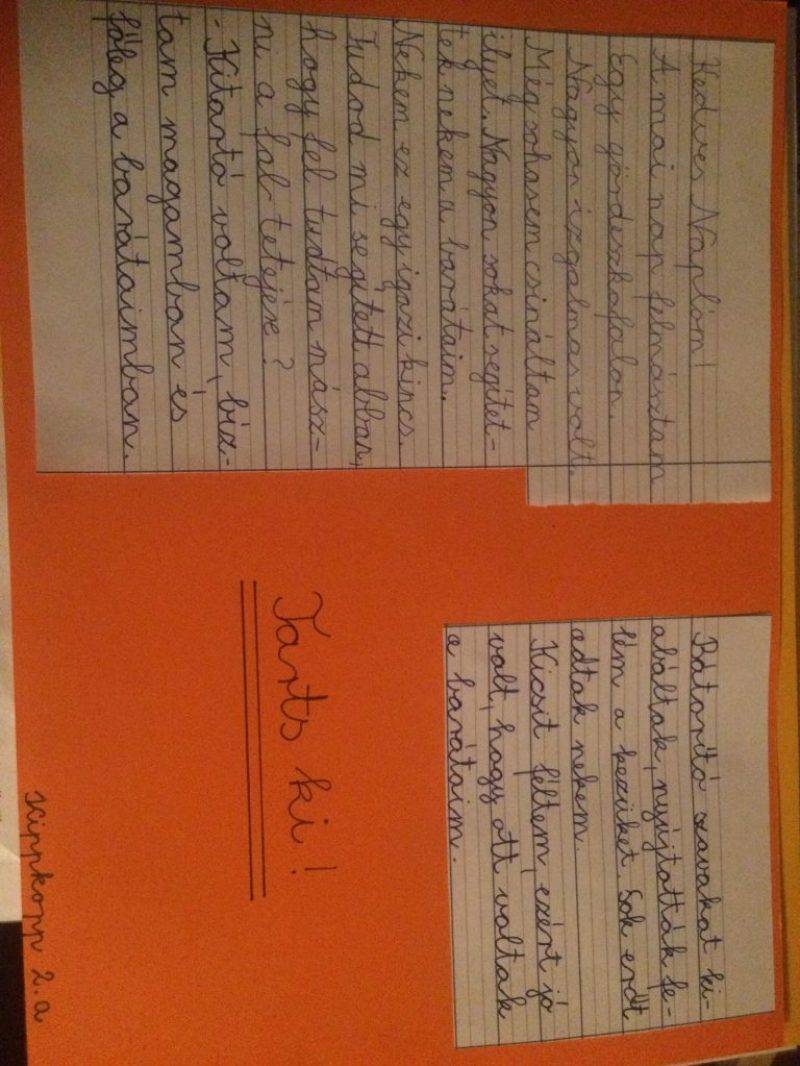 Kedves Naplóm!
A mai nap felmásztam
egy gördeszkafalon.
Nagyon izgalmas volt.
Még sohasem csináltam
ilyet. Nagyon sokat segítet-
tek nekem a barátaim.
Nekem ez egy igazi kincs.
Tudod mi segített abban,
hogy fel tudtam mász-
ni a fal tetejére?
- Kitartó voltam, bíz-
tam magamban és
főleg a barátaimban.
Bátorító szavakat ki-
abáltak, nyújtották fe-
lém a kezüket. Sok erőt
adtak nekem.
Kicsit féltem, ezért jó
volt, hogy ott voltak
a barátaim.
Tarts ki!
Kippkopp 2.a